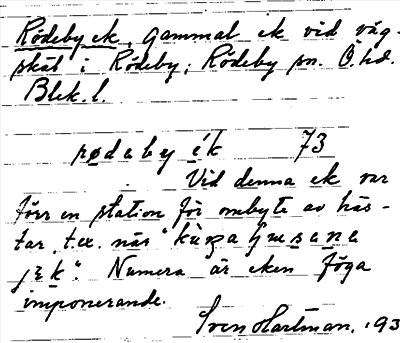 Rödeby ek, gammal ek vid väg-
skäl i Rödeby; Rödeby sn. Ö. hd.
Blek. l.
rødeby ék 73
Vid denna ek var
förr en station för ombyte av häs-
tar, t.ex. när "
jɛk". Numera är eken föga
imponerande.
Sven Hartman. 193